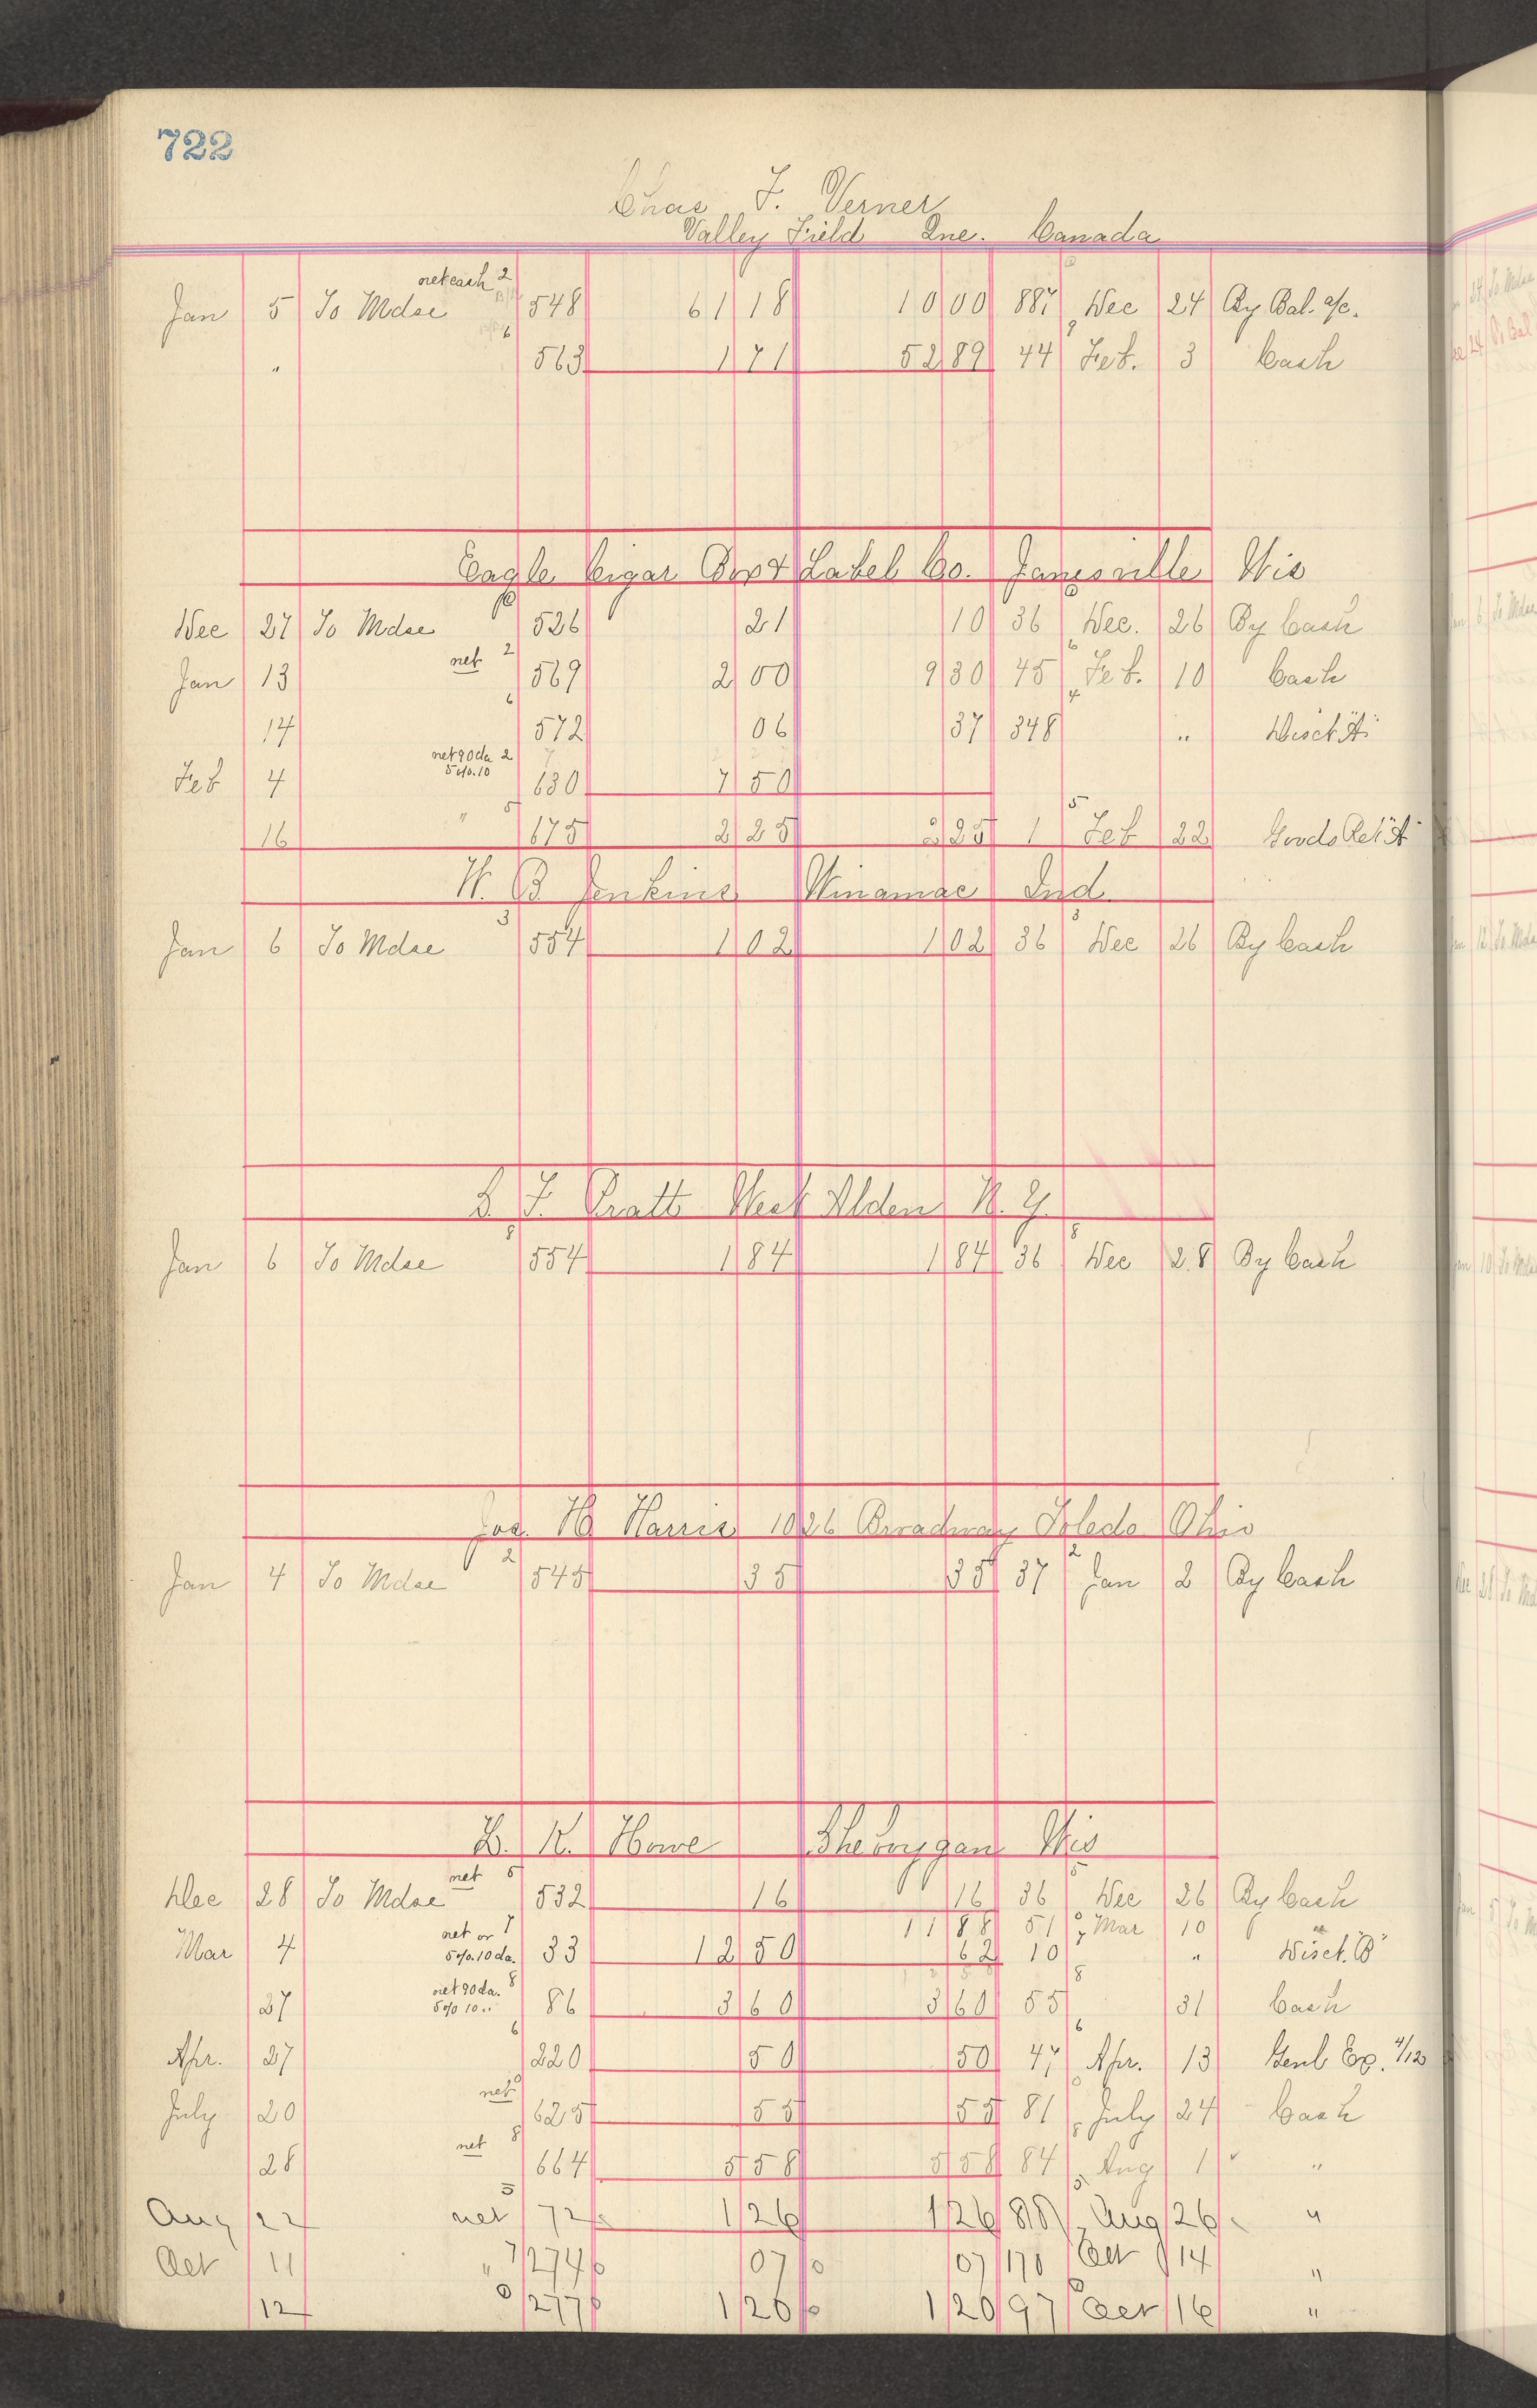 722
Chas F. Verner
Valley Field Que. Canada
net cash 2
Jan 5 To Mdse 548 61 18 10 00 887 Dec 24 By Bal. a/c.
6 9
" 563 1 71 52 89 44 Feb. 3 Cash
Eagle Cigar Box & Label Co. Janesville Wis
Dec 27 To Mdse 526 21 10 36 Dec. 26 By Cash
net 2 6
Jan 13 569 2 00 9 30 45 Feb. 10 Cash
6 4
14 572 06 37 348 " Disct "A"
net 90 da 2
5 o/o. 10
Feb 4 630 7 50
5 5
16 " 675 2 25 2 25 1 Feb 22 Goods Ret "A"
W. B Jenkins Winamac Ind.
3 3
Jan 6 To Mdse 554 1 02 1 02 36 Dec 26 By Cash
S. F. Pratt West Alden N. Y.
8 8
Jan 6 To Mdse 554 1 84 1 84 36 Dec 28 By Cash
Jos. H Harris 1026 Broadway Toledo Ohio
2 2
Jan 4 To Mdse 545 35 35 37 Jan 2 By Cash
H. K. Howe Sheboygan Wis
net 5 5
Dec 28 To Mdse 532 16 16 36 Dec 26 By Cash
net or 7 11 88 51 Mar 10 "
Mar 4 5 o/o. 10 da. 33 12 50 62 10 " Disct. "B"
net 90 da. 8 8
27 5 o/o 10 " 86 3 60 3 60 55 31 Cash
6 6
Apr. 27 220 50 50 47 Apr. 13 Genl Ex. 4/12
net
July 20 625 55 55 81 July 24 Cash
net 8 8
28 664 5 58 5 58 84 Aug 1 "
5 5
Aug 22 net 72 1 26 1 26 88 Aug 26 "
Oct 11 " 7 274 07 07 170 Oct 14 "
12 277 1 20 1 20 97 Oct 16 "